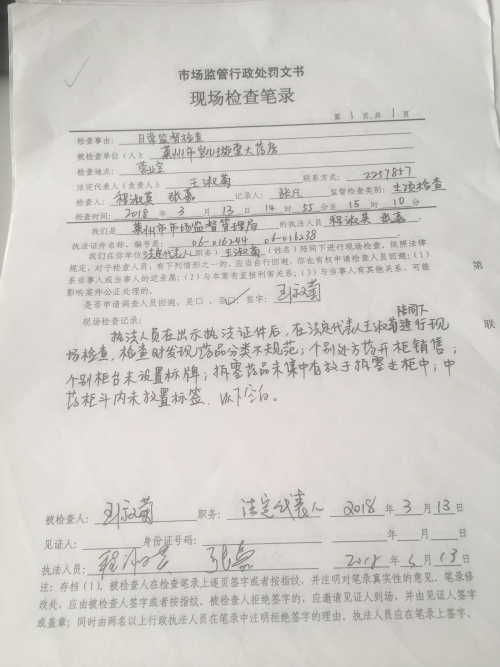 市场监管行政处罚文书
现场检查笔录
第 1 页,共 1 页
检查事由: 日常监督检查
被检查单位(人): 莱州市凯旋堂大药房
检查地点: 营业室
法定代表人(负责人): 王淑菊 联系方式: 2257857
检查人: 程淑英 张嘉 记录人: 张凡 监管检查类别: 主项检查
检查时间: 2018 年 3 月 13 日 14 时 55 分至 15 时 10 分
我们是 莱州市市场监督管理局 的执法人员 程淑英 张嘉
执法证件名称、编号是: 06-016244 06-016238
我们在你单位 法定代表人(职务) 王淑菊 (姓名)陪同下进行现场检查。依照法律
规定,对于检查人员,有下列情形之一的,应当自行回避,你也有权申请检查人员回避:(1)
系当事人或当事人的近亲属;(2)与本案有直接利害关系;(3)与当事人有其他关系,可能
影响案件公正处理的。
是否申请调查人员回避,是口,否口。签字: 王淑菊
第
联
现场检查记录:
执法人员在出示执法证件后,在法定代表人王淑菊陪同下进行现
场检查,检查时发现:药品分类不规范;个别处方药开柜销售;
个别柜台未设置标牌;拆零药品未集中存放于拆零专柜中;中
药柜斗内未放置标签。以下空白。
被检查人: 王淑菊 职务: 法定代表人 2018 年 3 月 13 日
见证人: 身份证号码: 年 月 日
执法人员: 程淑英 张嘉 2018 年 3 月 13 日
注:存档(1)。被检查人在检查笔录上逐页签字或者按指纹,并注明对笔录真实性的意见。笔录修
改处,应由被检查人签字或者按指纹。被检查人拒绝签字的,应邀请见证人到场,并由见证人签字
或盖章;同时由两名以上行政执法人员在笔录中注明拒绝签字的理由。执法人员应在笔录上签字。